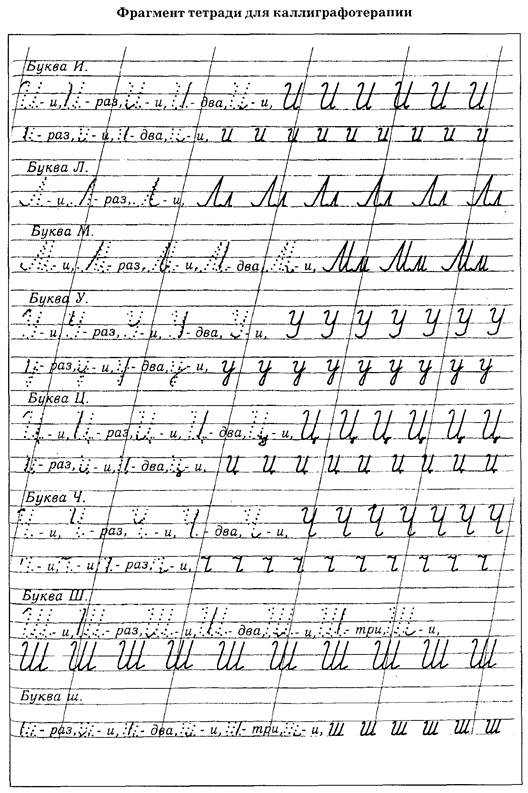 Фрагмент тетради для каллиграфотерапии
Буква И.
- и, - раз, - и, - два, - и, И И И И И И
- раз, - и, - два, - и, и и и и и и и и и
Буква Л.
- и, - раз, - и, Лл Лл Лл Лл Лл Лл
Буква М.
- и, - раз, - и, - два, - и, Мм Мм Мм
Буква У.
- и, - раз, - и, - два, - и, У У У У У У У
- раз, - и, - два, - и, у у у у у у у у у
Буква Ц.
- и, - раз, - и, - два, - и, Ц Ц Ц Ц Ц Ц
- раз, - и, - два, - и, ц ц ц ц ц ц ц ц ц
Буква Ч.
- и, - раз, - и, - два, - и, Ч Ч Ч Ч Ч Ч Ч
- и, - и, - раз, - и, ч ч ч ч ч ч ч ч ч
Буква Ш.
- и, - раз, - и, - два, - и, - три, - и,
Ш Ш Ш Ш Ш Ш Ш Ш Ш Ш
Буква ш.
- раз, - и, - два, - и, - три, - и, ш ш ш ш ш ш